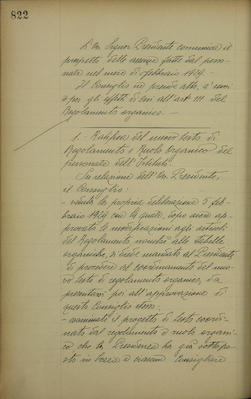 822
L'On. Signor Presidente comunica il
prospetto delle assenze fatte dal perso-
nale nel mese di febbraio 1929.
Il Consiglio ne prende atto, a' sensi
e per gli effetti di cui all'art. 111 del
Regolamento organico.
1. Ratifica del nuovo testo di
Regolamento e Ruolo Organico del
personale dell'Istituto.
Su relazione dell'On. Presidente,
il Consiglio:
- veduta la propria deliberazione 5 feb-
braio 1929 con la quale, dopo avere ap-
provato le modificazioni agli articoli
del Regolamento nonché alle tabelle
organiche, si diede mandato al Presidente
di provvedere al coordinamento del nuo-
vo testo di regolamento organico, da
presentarsi poi all'approvazione di
questo Consiglio stesso;
- esaminato il progetto di testo coordi-
nato del regolamento e ruolo organi-
co che la Presidenza ha già sottopo-
sto in bozza a ciascun Consigliere